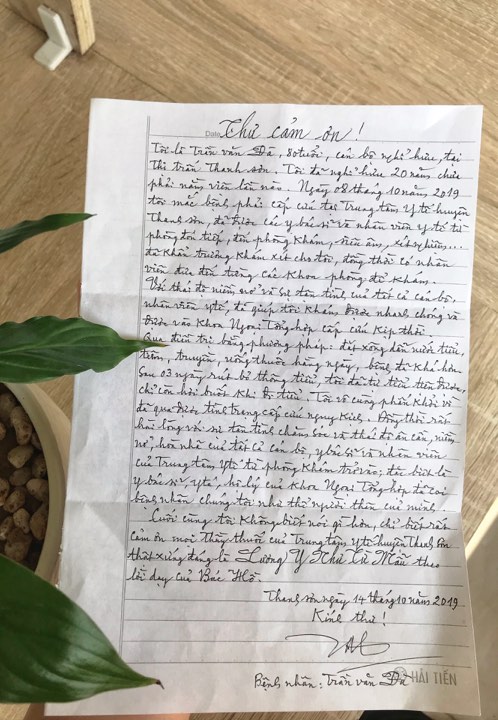 Date
Thư cảm ơn!
Tôi là Trần Văn Đa, 80 tuổi, cán bộ nghỉ hưu, tại
thị trấn Thanh Sơn. Tôi đã nghỉ hưu 20 năm chưa
phải nằm viện lần nào. Ngày 08 tháng 10 năm 2019
tôi mắc bệnh phải cấp cứu tại Trung tâm Y tế huyện
Thanh Sơn, đã được các y bác sĩ và nhân viên y tế từ
phòng đón tiếp, đến phòng khám, siêu âm, xét nghiệm...
đã khẩn trương khám xét cho tôi, đồng thời có nhân
viên đưa đến từng các khoa phòng để khám.
Với thái độ niềm nở và sự tận tình của tất cả cán bộ,
nhân viên y tế, đã giúp tôi khám được nhanh chóng và
được vào Khoa Ngoại Tổng hợp cấp cứu kịp thời.
Qua điều trị bằng phương pháp: đặt xông dẫn nước tiểu,
tiêm, truyền, uống thuốc hàng ngày, bệnh đã khá hơn.
Sau 03 ngày rút bỏ thông tiểu, tôi đã tự tiểu tiện được,
chỉ còn hơi buốt khi đi tiểu. Tôi vô cùng phấn khởi vì
đã qua được tình trạng cấp cứu nguy kịch. Đồng thời rất
hài lòng với sự tận tình chăm sóc và thái độ ân cần, niềm
nở, hòa nhã của tất cả cán bộ, y bác sĩ và nhân viên
của Trung tâm y tế từ phòng khám trở vào; đặc biệt là
y bác sĩ, y tá, hộ lý của Khoa Ngoại Tổng hợp đã coi
bệnh nhân chúng tôi như thể người thân của mình.
Cuối cùng tôi không biết nói gì hơn, chỉ biết rất
cảm ơn mọi thầy thuốc của Trung tâm y tế huyện Thanh Sơn
thật xứng đáng là Lương Y Như Từ Mẫu theo
lời dạy của Bác Hồ.
Thanh Sơn ngày 14 tháng 10 năm 2019
Kính thư!
HẢI TIẾN
Bệnh nhân: Trần Văn Đa